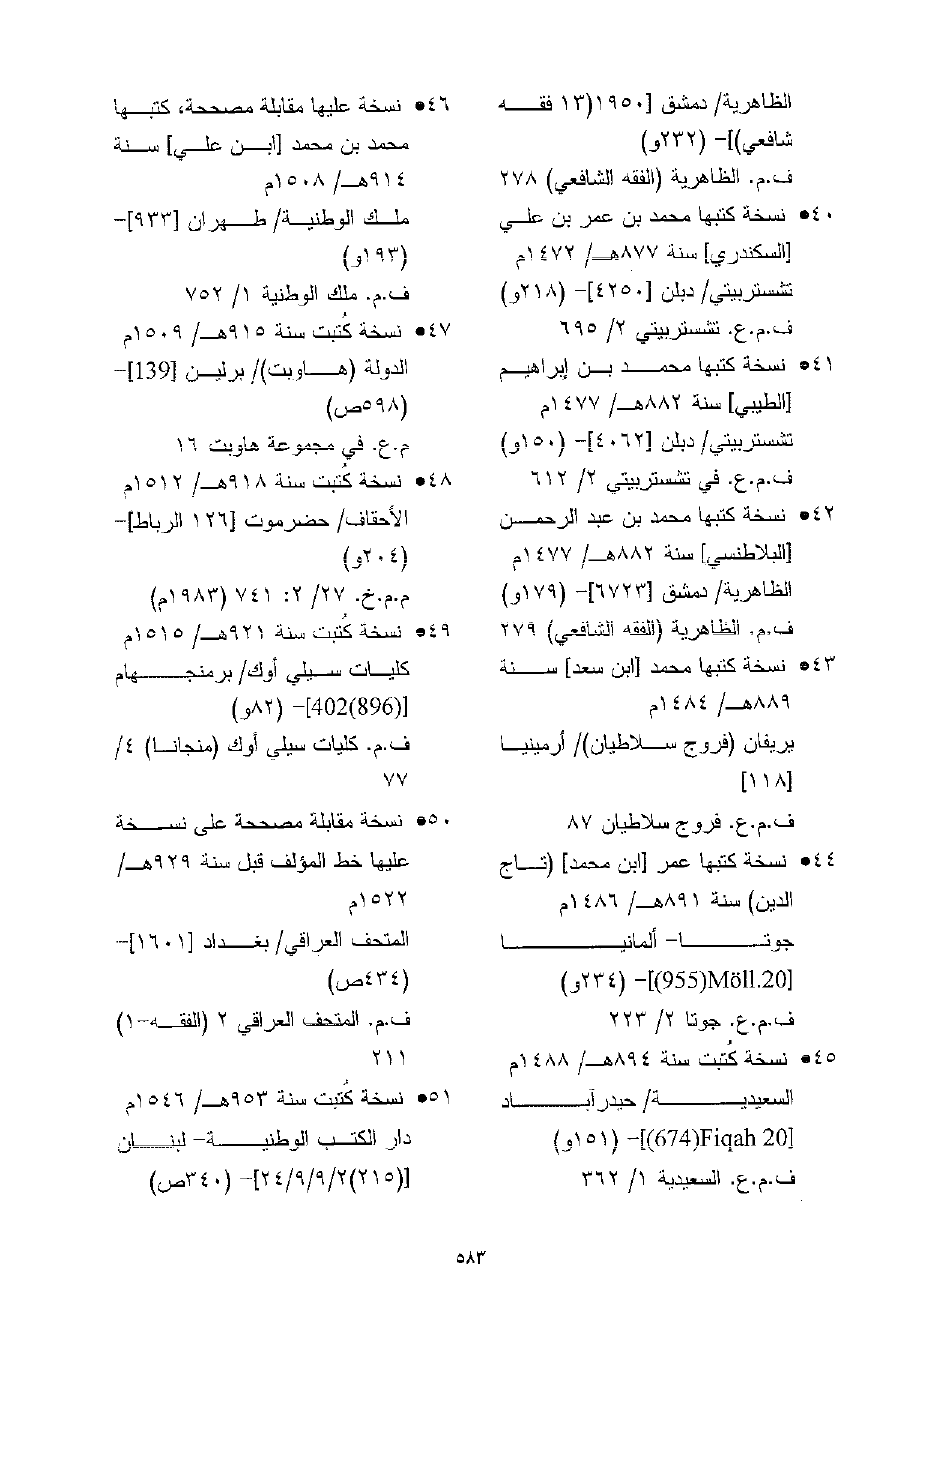 الظاهرية/ دمشق [١٩٥٠(١٣ فقه
شافعي)]– (٢٣٢و)
ف.م. الظاهرية (الفقه الشافعي) ٢٧٨
٤٠• نسخة كتبها محمد بن عمر بن علي
[السكندري] سنة ٨٧٧هـ/ ١٤٧٢م
تشستربيتي/ دبلن [٤٢٥٠]– (٢١٨و)
ف.م.ع. تشستربيتي ٢/ ٦٩٥
٤١• نسخة كتبها محمد بن إبراهيم
[الطيبي] سنة ٨٨٢هـ/ ١٤٧٧م
تشستربيتي/ دبلن [٤٠٦٢]– (١٥٠و)
ف.م.ع. في تشستربيتي ٢/ ٦١٢
٤٢• نسخة كتبها محمد بن عبد الرحمن
[البلاطنسي] سنة ٨٨٢هـ/ ١٤٧٧م
الظاهرية/ دمشق [٦٧٢٣]– (١٧٩و)
ف.م. الظاهرية (الفقه الشافعي) ٢٧٩
٤٣• نسخة كتبها محمد [ابن سعد] سنة
٨٨٩هـ/ ١٤٨٤م
بريفان (فروج سلاطيان)/ أرمينيا
[١١٨]
ف.م.ع. فروج سلاطيان ٨٧
٤٤• نسخة كتبها عمر [ابن محمد] (تاج
الدين) سنة ٨٩١هـ/ ١٤٨٦م
جوتا– ألمانيا
[955)Möll.20)]– (٢٣٤و)
ف.م.ع. جوتا ٢/ ٢٢٣
٤٥• نسخة كُتبت سنة ٨٩٤هـ/ ١٤٨٨م
السعيدية/ حيدرآباد
[674)Fiqah 20)]– (١٥١و)
ف.م.ع. السعيدية ١/ ٣٦٢
٤٦• نسخة عليها مقابلة مصححة، كتبها
محمد بن محمد [ابن علي] سنة
٩١٤هـ/ ١٥٠٨م
ملك الوطنية/ طهران [٩٣٣]–
(١٩٣و)
ف.م. ملك الوطنية ١/ ٧٥٢
٤٧• نسخة كُتبت سنة ٩١٥هـ/ ١٥٠٩م
الدولة (هاوبت)/ برلين [139]–
(٥٩٨ص)
م.ع. في مجموعة هاوبت ١٦
٤٨• نسخة كُتبت سنة ٩١٨هـ/ ١٥١٢م
الأحقاف/ حضرموت [١٢٦ الرباط]–
(٢٠٤و)
م.م.خ. ٢٧/ ٢: ٧٤١ (١٩٨٣م)
٤٩• نسخة كُتبت سنة ٩٢١هـ/ ١٥١٥م
كليات سيلي أوك/ برمنجهام
[402(896)]– (٨٢و)
ف.م. كليات سيلي أوك (منجانا) ٤/
٧٧
٥٠• نسخة مقابلة مصححة على نسخة
عليها خط المؤلف قبل سنة ٩٢٩هـ/
١٥٢٢م
المتحف العراقي/ بغداد [١٦٠١]–
(٤٣٤ص)
ف.م. المتحف العراقي ٢ (الفقه–١)
٢١١
٥١• نسخة كُتبت سنة ٩٥٣هـ/ ١٥٤٦م
دار الكتب الوطنية– لبنان
[(٢١٥)٢٤/٩/٩/٢]– (٣٤٠ص)
٥٨٣